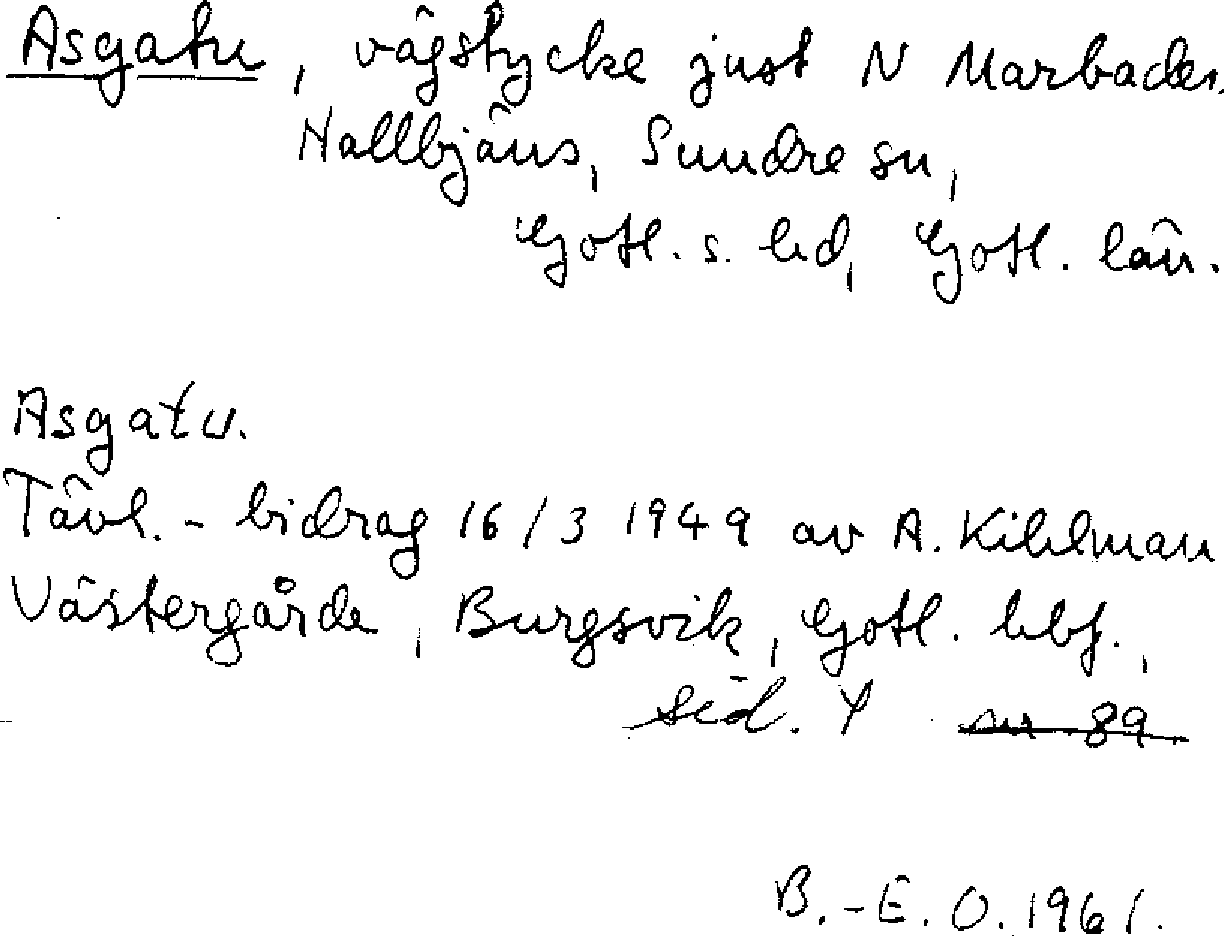 Asgatu, vägstycke just N Marbader,
Hallbjäns, Sundre sn,
Gotl. s. hd, Gotl. län.
Asgatu.
Tävl. - bidrag 16/3 1949 av A. Kihlman
Västergårde, Burgsvik, Gotl. hbf.,
sid. 4 nr 89.
B.-E. O. 1961.